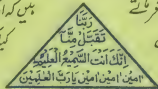 رَبَّنَا
تَقَبَّلْ مِنَّا
اِنَّكَ اَنْتَ السَّمِیْعُ الْعَلِیْمُ
اٰمین اٰمین اٰمین یَارَبَّ الْعٰلَمِیْنَ